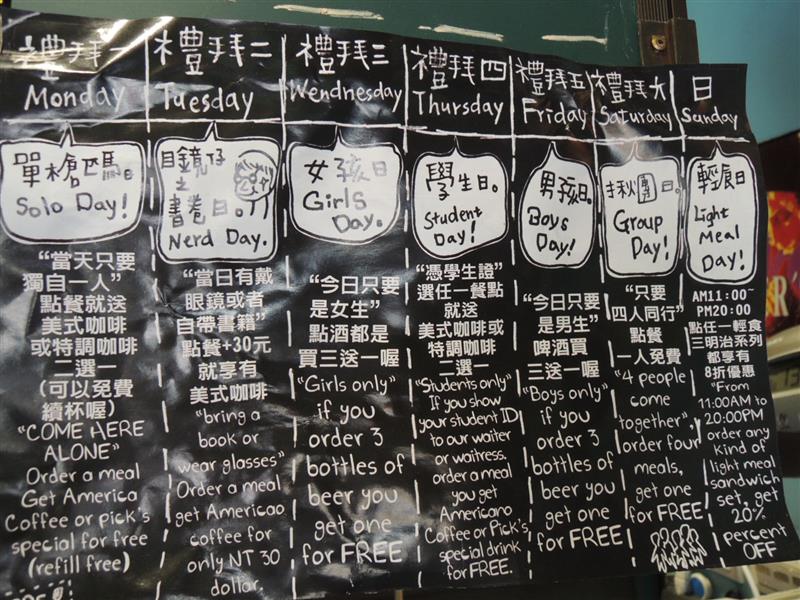 禮拜一
Monday
單槍匹馬日
Solo Day!
“當天只要
獨自一人”
點餐就送
美式咖啡
或特調咖啡
二選一
(可以免費
續杯喔)
“COME HERE
ALONE”
Order a meal
Get America
Coffee or pick's
special for free
(refill free)
禮拜二
Tuesday
眼鏡仔
之
書卷日。
Nerd Day.
“當日有戴
眼鏡或者
自帶書籍”
點餐+30元
就享有
美式咖啡
“bring a
book or
wear glasses”
Order a meal
get Americao
coffee for
only NT 30
dollar.
禮拜三
Wendnesday
女孩日
Girls
Day.
“今日只要
是女生”
點酒都是
買三送一喔
“Girls only”
if you
order 3
bottles of
beer you
get one
for FREE
禮拜四
Thursday
學生日。
Student
Day!
“憑學生證”
選任一餐點
就送
美式咖啡或
特調咖啡
二選一
“Students only”
If you show
your student ID
to our waiter
or waitress.
order a meal
you get
Americano
Coffee or Pick's
special drink
for FREE.
禮拜五
Friday
男孩日。
Boys
Day!
“今日只要
是男生”
啤酒買
三送一喔
“Boys only”
if you
order 3
bottles of
beer you
get one
for FREE
禮拜六
Saturday
揪團日。
Group
Day!
“只要
四人同行”
點餐
一人免費
“4 people
come
together”
order four
meals,
get one
for FREE
日
Sunday
輕食日
Light
Meal
Day!
AM11:00~
PM20:00
點任一輕食
三明治系列
都享有
8折優惠
“From
11:00AM to
20:00PM
order any
kind of
light meal
sandwich
set, get
20%
percent
OFF